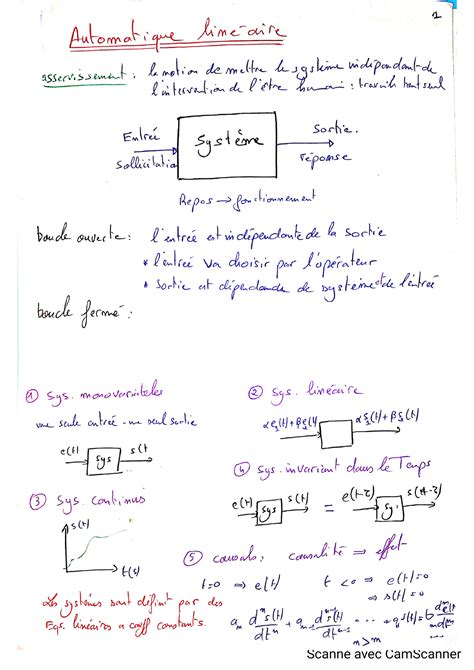 1
Automatique linéaire
asservissement : la notion de mettre le système indépendant de
l'intervention de l'être humain : travaile tout seul
Entrée
Sollicitation
Système
Sortie.
réponse
Repos → fonctionnement
boucle ouverte : l'entrée est indépendante de la sortie
* l'entrée va choisir par l'opérateur
* Sortie est dépendante de système et de l'entrée
boucle fermé :
① Sys. monovariables
une seule entrée - une seul sortie
e(t) sys s(t)
② Sys. linéaire
③ Sys. continus
s(t)
t(s)
④ Sys. invariant dans le Temps
e(t) sys s(t) = e(t-τ) sy. s(t-τ)
⑤ causals, causalité ⇒ effet
t=0 ⇒ e(t) t<0 ⇒ e(t)=0
⇒ s(t)=0
Les systèmes sont définit par des
Eqs. linéaires a coeff constants.
n>m
Scanne avec CamScanner